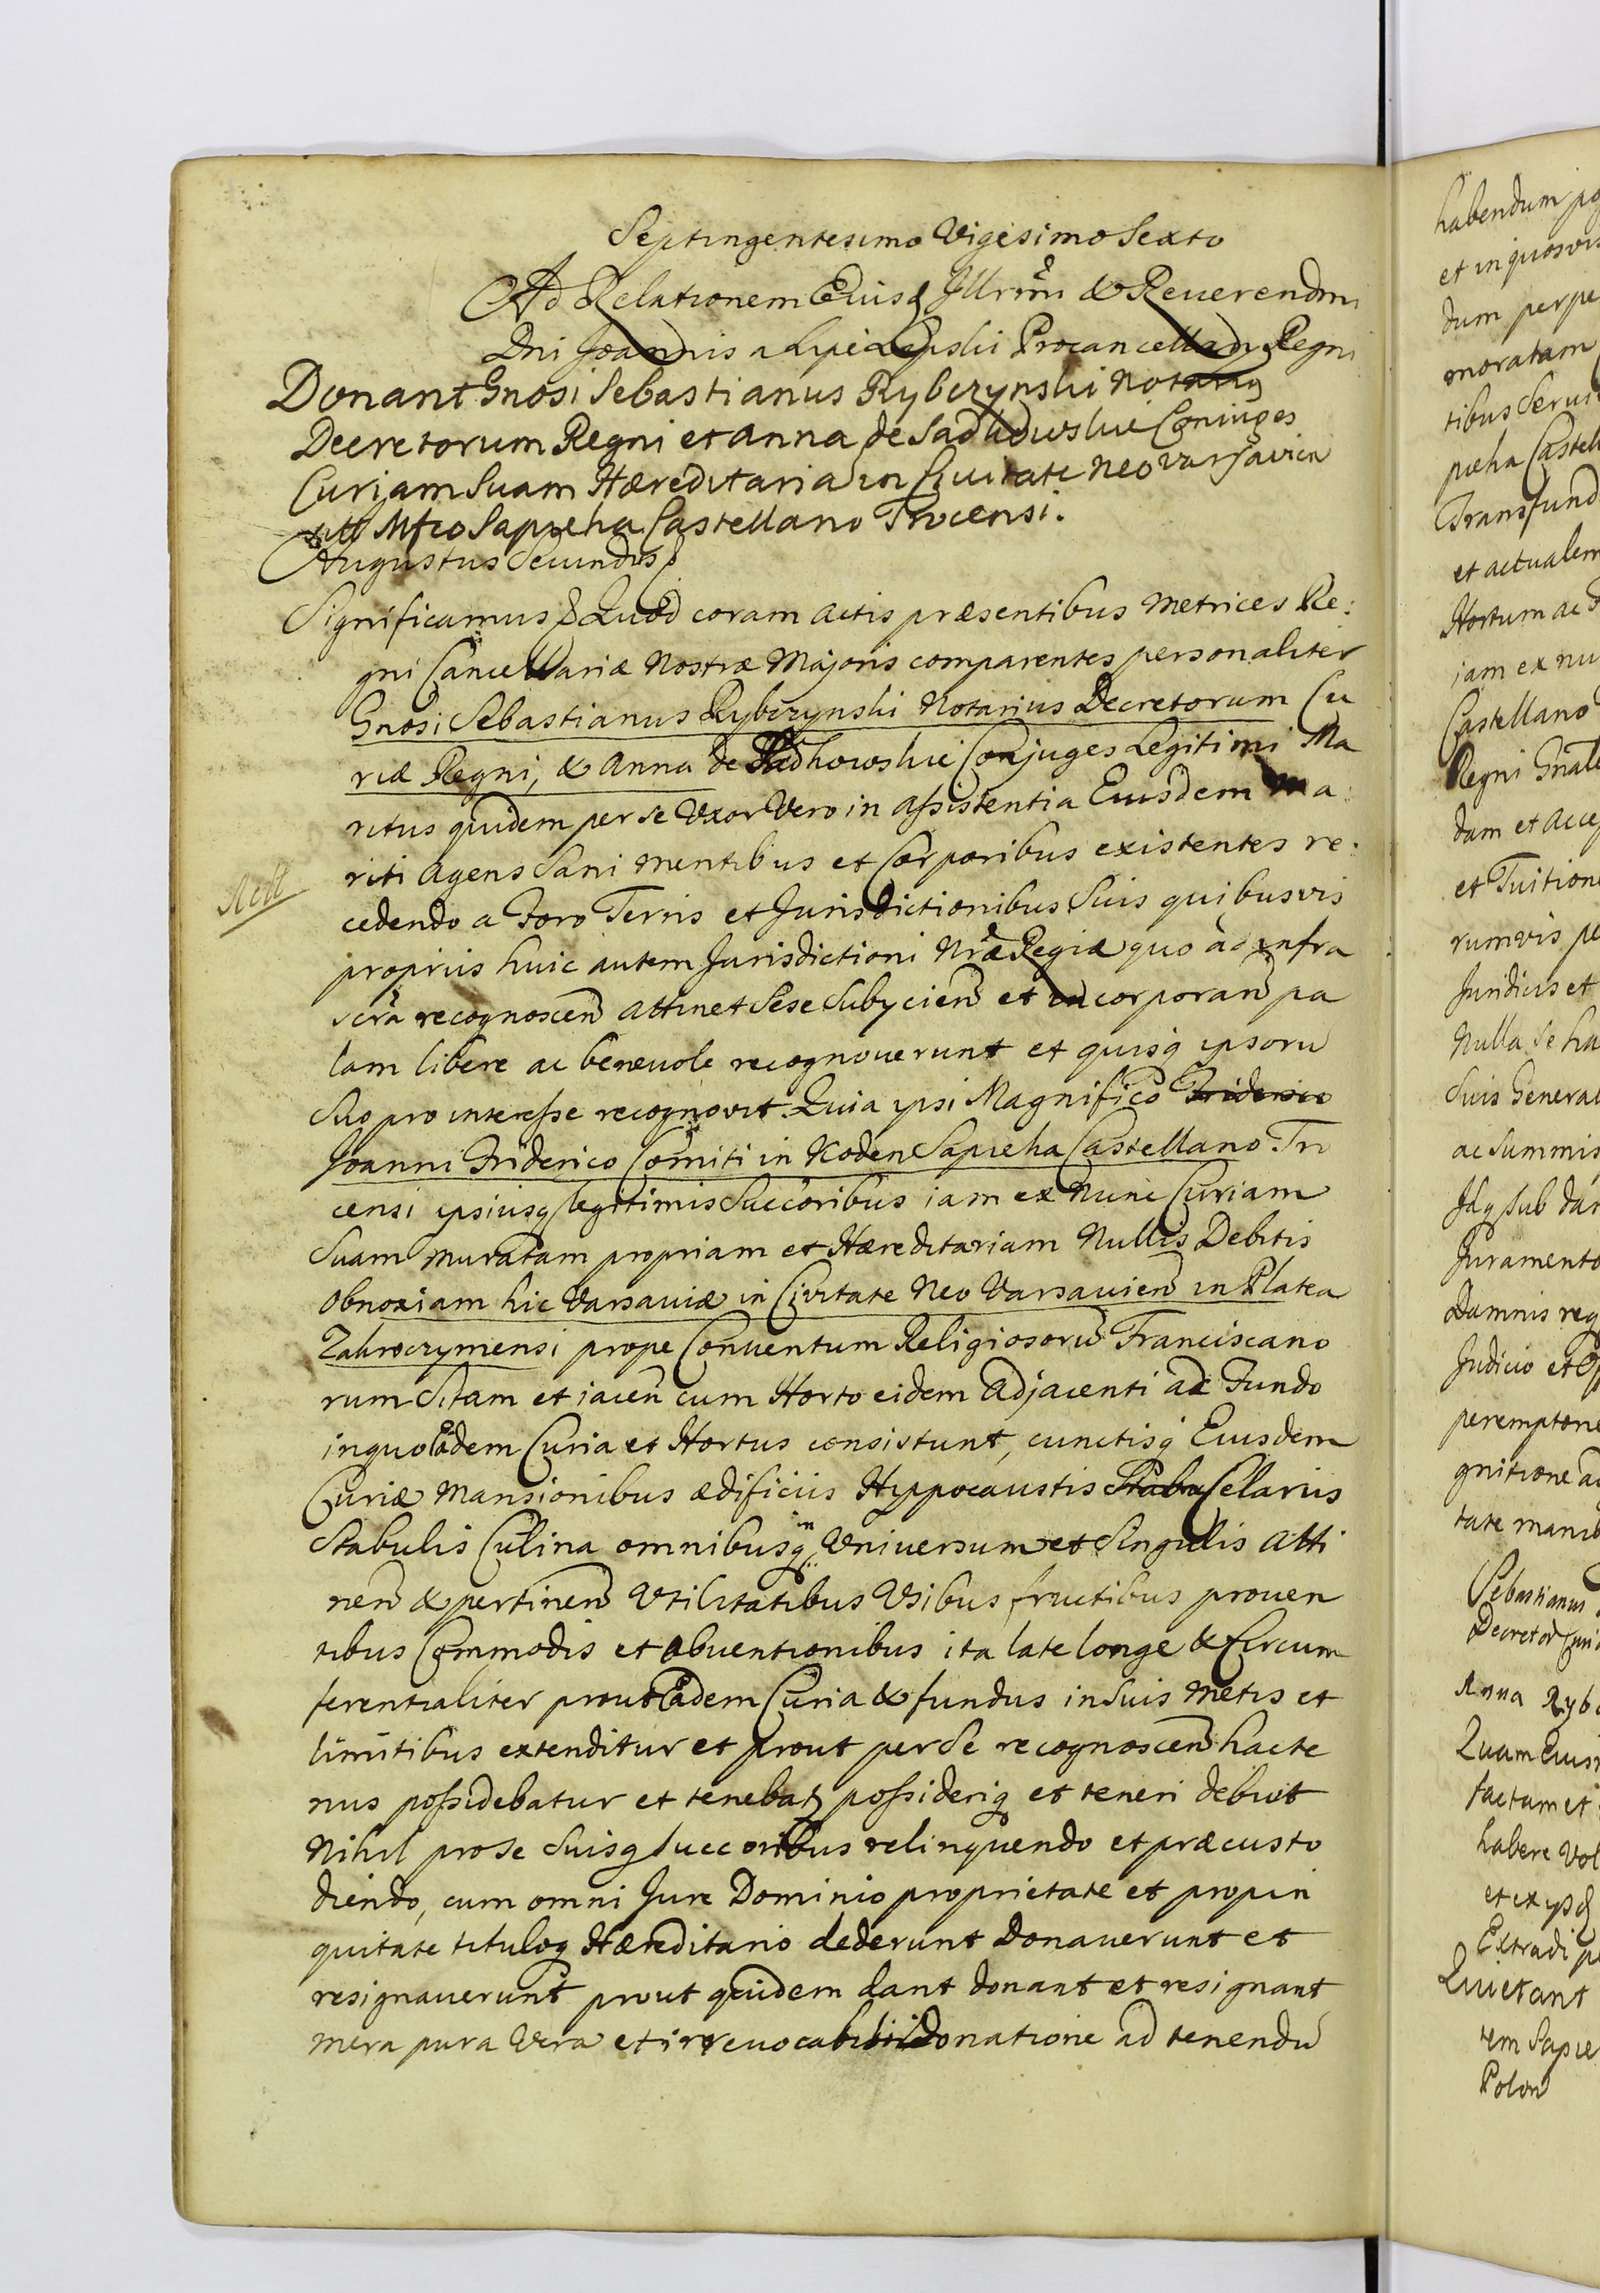 Septingentesimo Vigesimo Sexto
Ad Relationem Eiusd Illrmi & Reuerendmi
Dni Joannis a Lipie Lipski Procancellarij Regni
Donant Gnosi Sebastianus Rybczynski Notarius
Decretorum Regni et Anna de Sadkowskie Coniuges
Curjam Suam Hæreditaria in Ciuitate Neo Varsavien
Mfco Sapieha Castellano Trocensi.
Augustus Secundus
Significamus Quod coram actis præsentibus Metrices Re:
gni Cancellariæ Nostræ Majoris comparentes personaliter
Gnosi Sebastianus Rybczynski Notarius Decretorum Cu
riæ Regni, & Anna de Sadkowskie Conjuges Legitimi Ma
ritus quidem per se Uxor Vero in assistentia Eiusdem Ma:
riti agens Sani mentibus et Corporibus existentes re:
cedendo a Foro Terris et Jurisdictionibus Suis quibusvis
proprijs huic autem Jurisdictioni Nræ Regiæ quo ad infra
scra recognoscen attinet Sese Subycien et incorporan pa
lam libere ac beneuole recognouerunt et quisq ipsoru
Suo pro interesse recognovit. Quia ipsi Magnifico Friderico
Joanni Friderico Comiti in Koden Sapieha Castellano Tro
censi ipsiusq legitimis Succoribus iam ex nunc Curiam
Suam muratam propriam et Hæreditariam Nullis Debitis
obnoxiam hic Varsauiæ in Civitate Neo Varsauien in Platea
Zakroczymensi prope Conuentum Religiosoru Franciscano
rum Sitam et iacen cum Horto eidem Adjacenti ac Fundo
in quo Eadem Curia et Hortus consistunt, cunctisq Eiusdem
Curiæ Mansionibus ædificijs Hyppocaustis Staba Celarijs
Stabulis Culina omnibusq in Vniuersum et Singulis atti
nen & pertinen Vtilitatibus Vsibus fructibus prouen
tibus Commodis et obuentionibus ita late longe & Circum
ferentialiter prout Eadem Curia & fundus in Suis Metis et
limitibus extenditur et prout per Se recognoscen hacte
nus possidebatur et tenebat possideriq et teneri debuit
Nihil pro Se Suisq Succoribus relinquendo et præcusto
diendo, cum omni Jure Dominio proprietate et propin
quitate tituloq Hæreditario dederunt Donauerunt et
resignauerunt prout quidem dant donant et resignant
mera pura Vera et irreuocabili Donatione ad tenendu
habendum
et in quosvis
dum perpe
moratam
tibus Serui
pieha Castell
Transfund
et actualem
Hortum ac
iam ex nu
Castellano
Regni Gnale
dam et acce
et Tuitione
rumvis pe
Juridicis et
Nulla Se ha
Suis General
ac Summis
Idq Sub
Juramento
Damnis req
Judicio et
peremptorie
gnitione
tate manib
Sebastianus
Decretor
Anna Ryb
Quam
factam et
habere Vol
Extradi
Quietant
tem Sapie
Polon